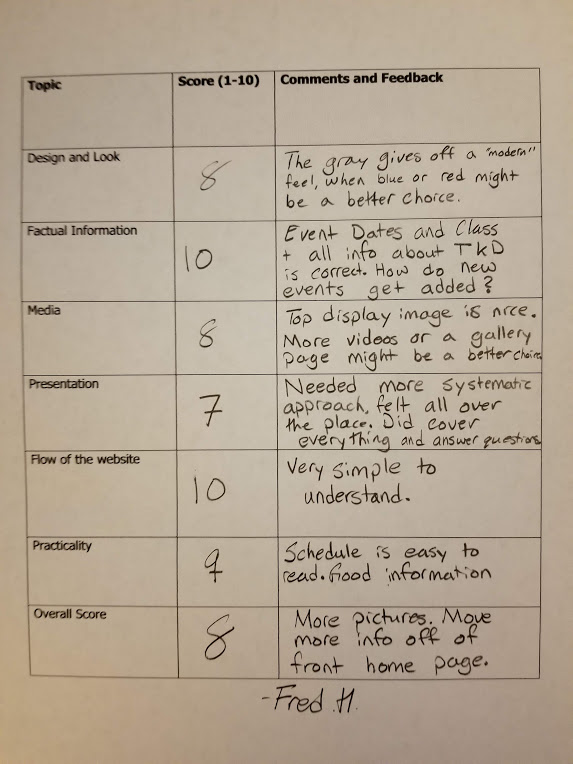 Topic Score (1-10) Comments and Feedback
Design and Look 8 The gray gives off a "modern"
feel, when blue or red might
be a better choice.
Factual Information 10 Event Dates and Class
+ all info about TKD
is correct. How do new
events get added?
Media 8 Top display image is nice.
More videos or a gallery
page might be a better choice.
Presentation 7 Needed more systematic
approach, felt all over
the place. Did cover
everything and answer questions.
Flow of the website 10 Very simple to
understand.
Practicality 9 Schedule is easy to
read. Good information
Overall Score 8 More pictures. Move
more info off of
front home page.
-Fred .H.